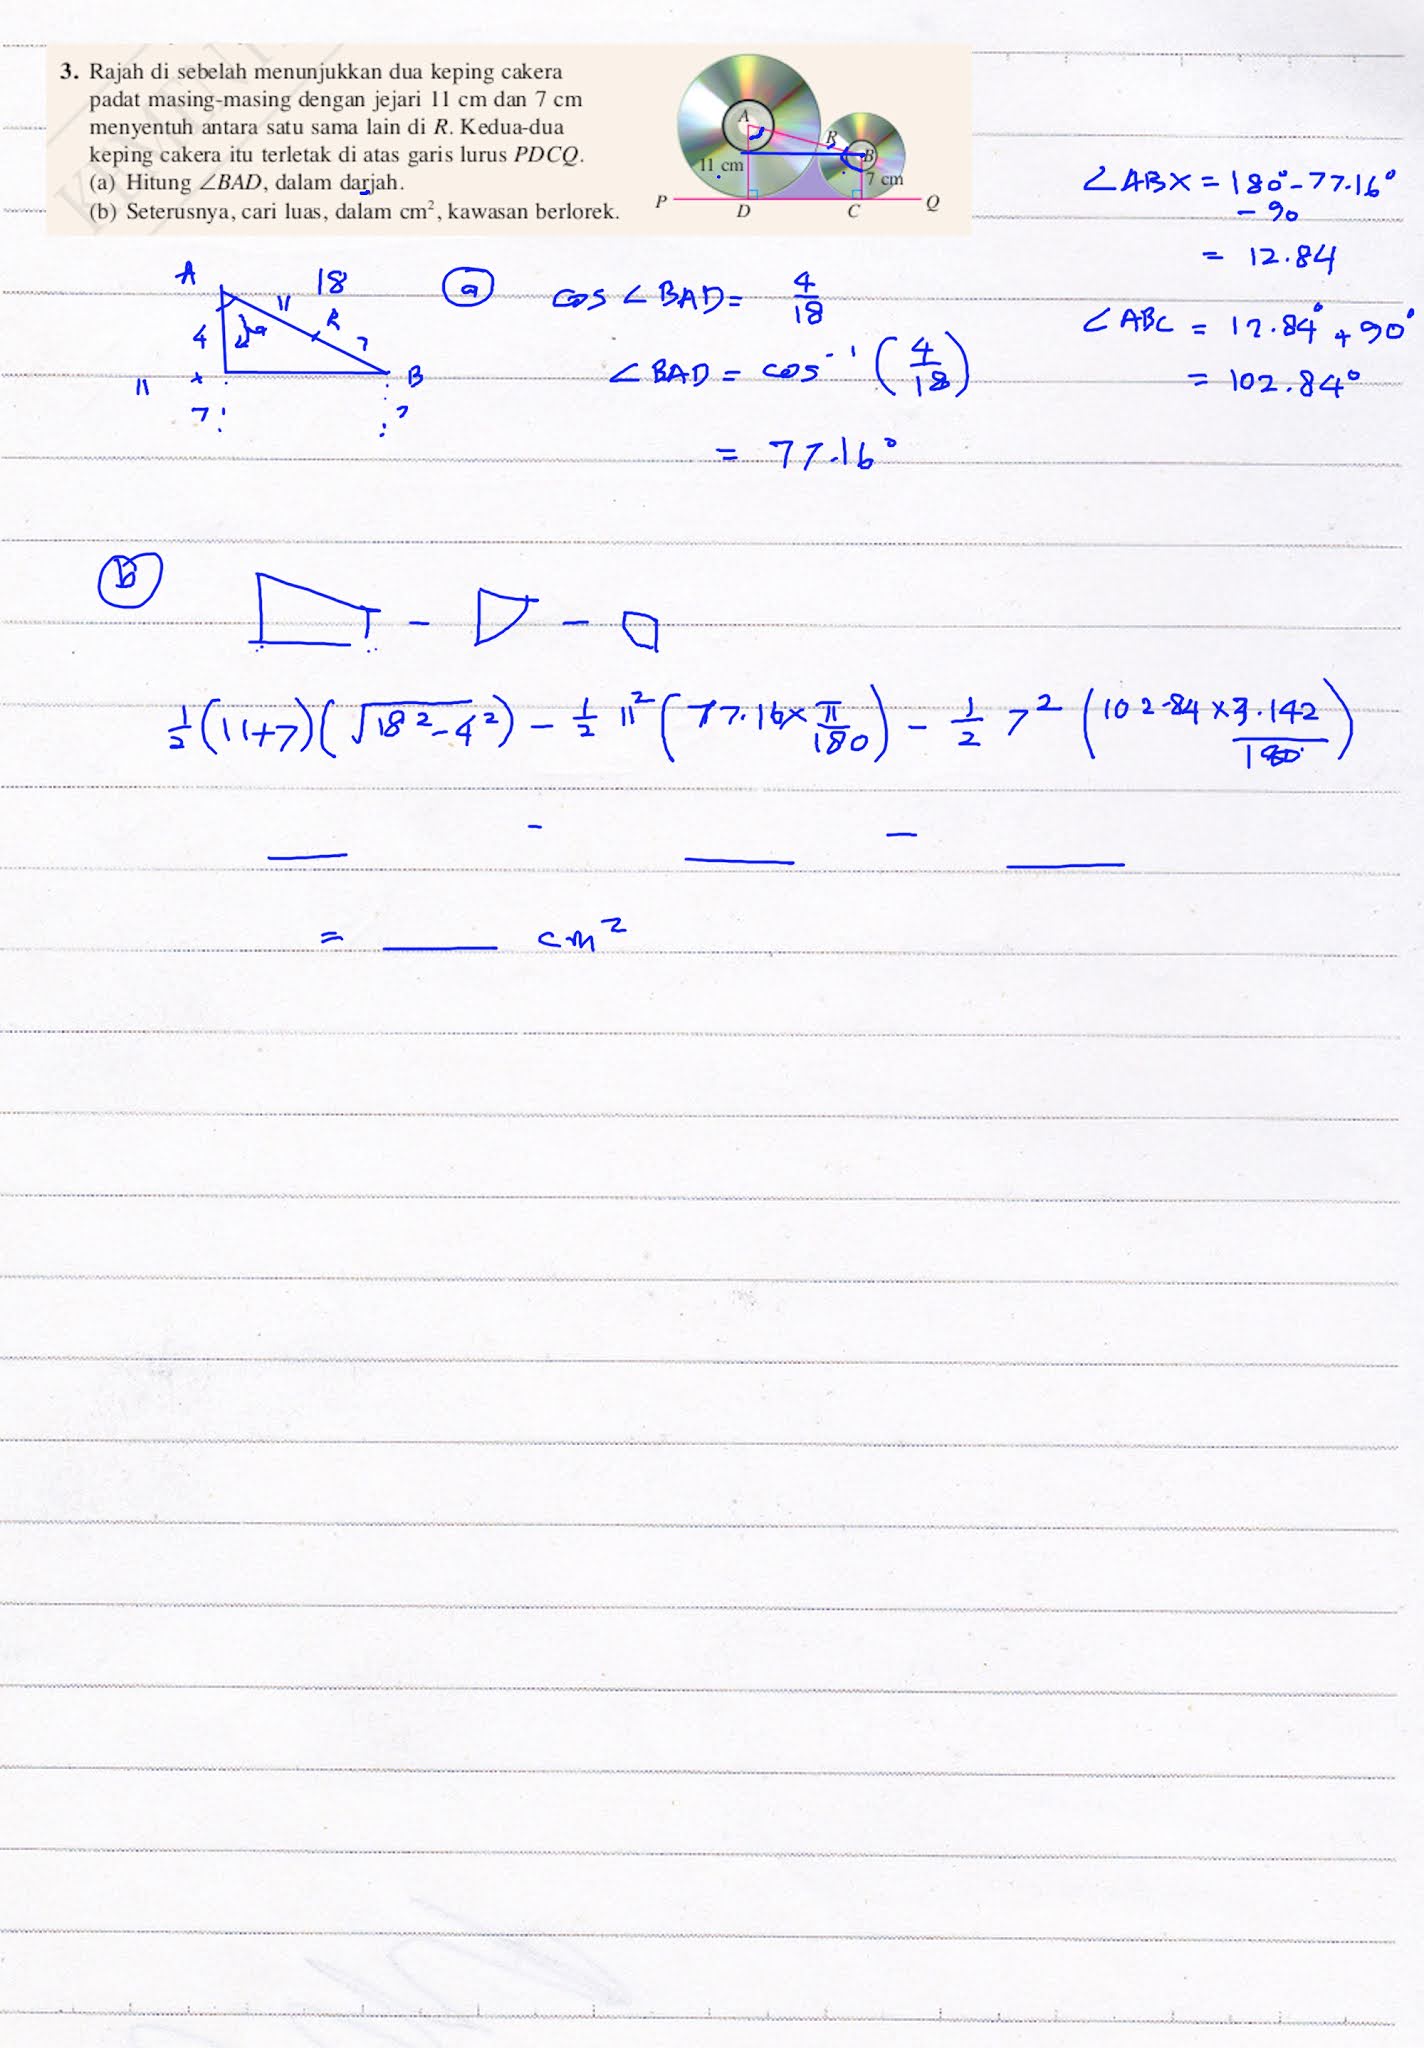 3. Rajah di sebelah menunjukkan dua keping cakera
padat masing-masing dengan jejari 11 cm dan 7 cm
menyentuh antara satu sama lain di R. Kedua-dua
keping cakera itu terletak di atas garis lurus PDCQ.
(a) Hitung ∠BAD, dalam darjah.
(b) Seterusnya, cari luas, dalam cm², kawasan berlorek.
A
R
B
11 cm
7 cm
P
D
C
Q
∠ABX = 180° - 77.16°
- 90
= 12.84
∠ABC = 12.84° + 90°
= 102.84°
A
18
11
R
4
7
11
x
B
7
7
(a) cos ∠BAD = 4/18
∠BAD = cos⁻¹ (4/18)
= 77.16°
(b)
- -
1/2 (11+7)(√18² - 4²) - 1/2 11² (77.16 × π/180) - 1/2 7² (102.84 × 3.142/180)
- -
= ____ cm²